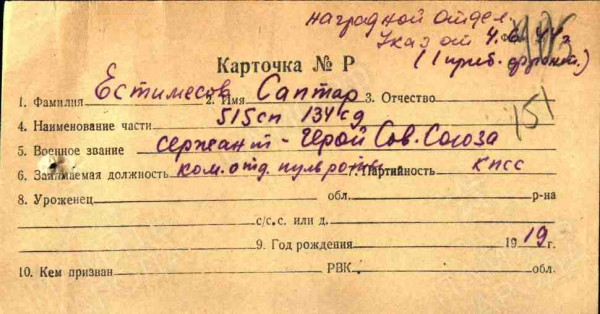 наградной отдел
Указ от 4.6.44г
(1 приб. фронт.)
Карточка № Р
1. Фамилия Естимесов 2. Имя Саптар 3. Отчество
151
4. Наименование части 515сп 134сд
5. Военное звание сержант - Герой Сов. Союза
6. Занимаемая должность ком. отд. пульроты 7. Партийность КПСС
8. Уроженец обл. р-на
с/с.с. или д.
9. Год рождения 1919 г.
10. Кем призван РВК. обл.